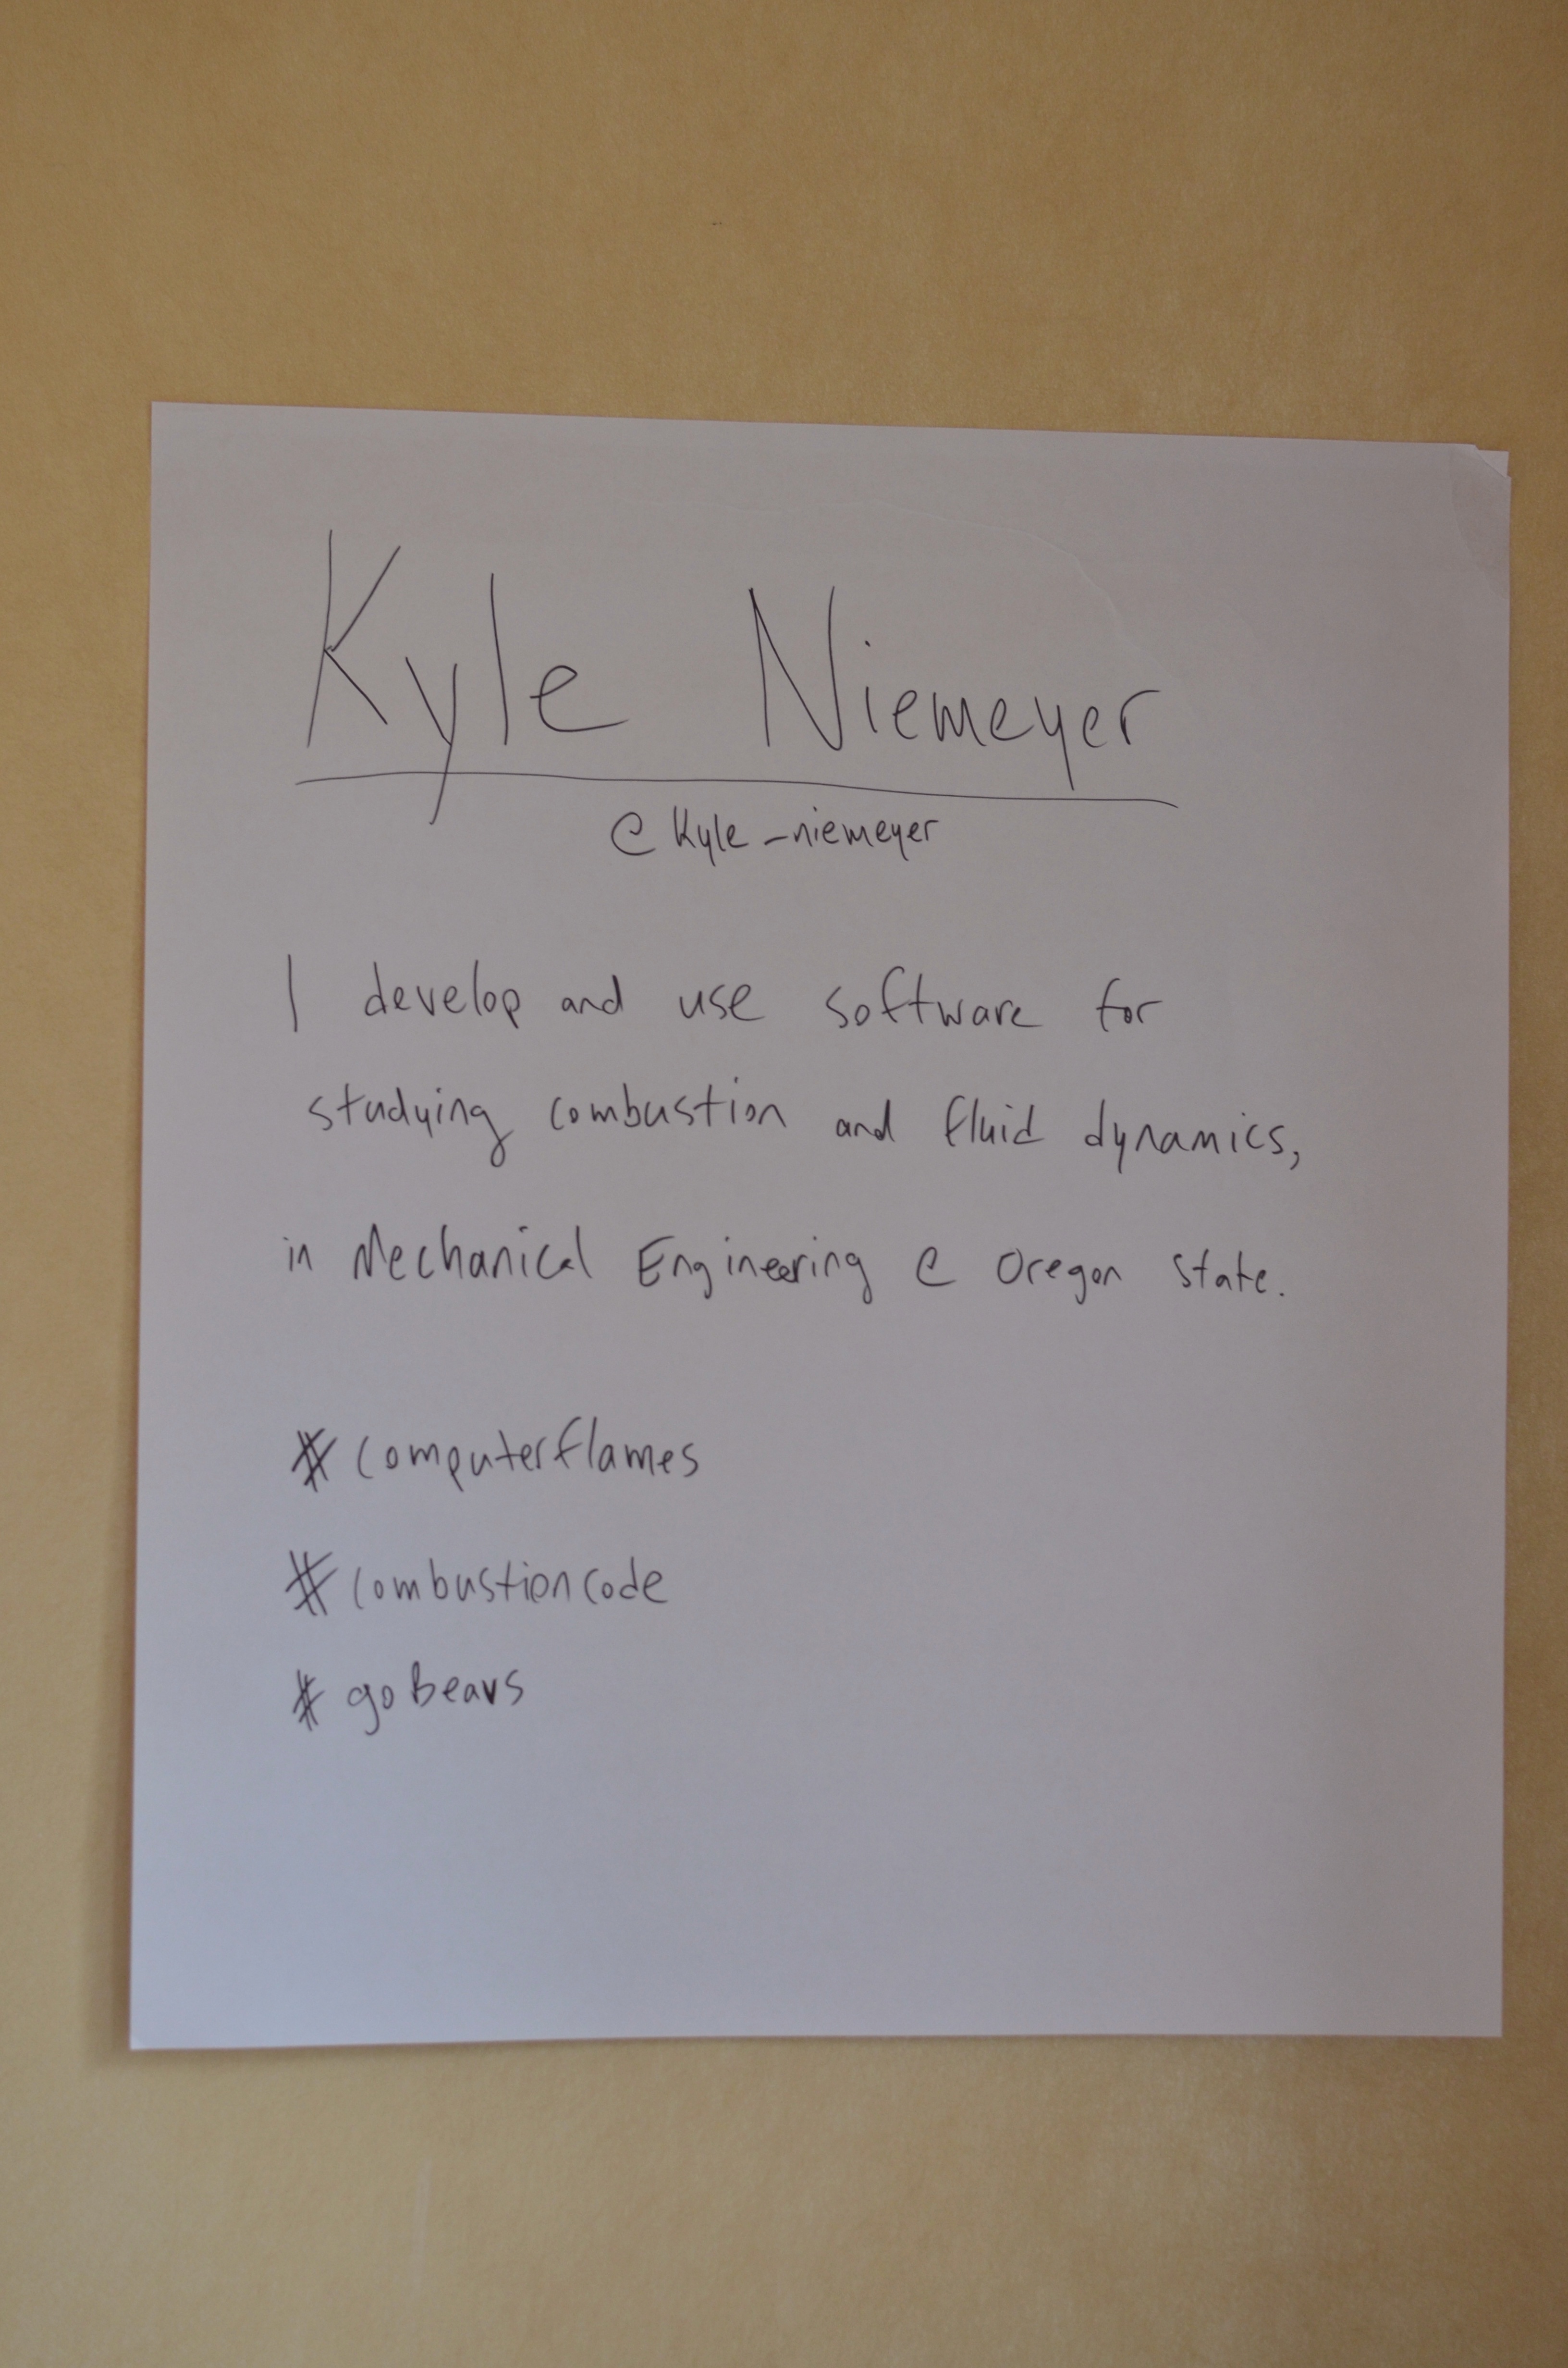 Kyle Niemeyer
@kyle_niemeyer
I develop and use software for
studying combustion and fluid dynamics,
in Mechanical Engineering @ Oregon State.
#computerflames
#combustioncode
#goBeavs